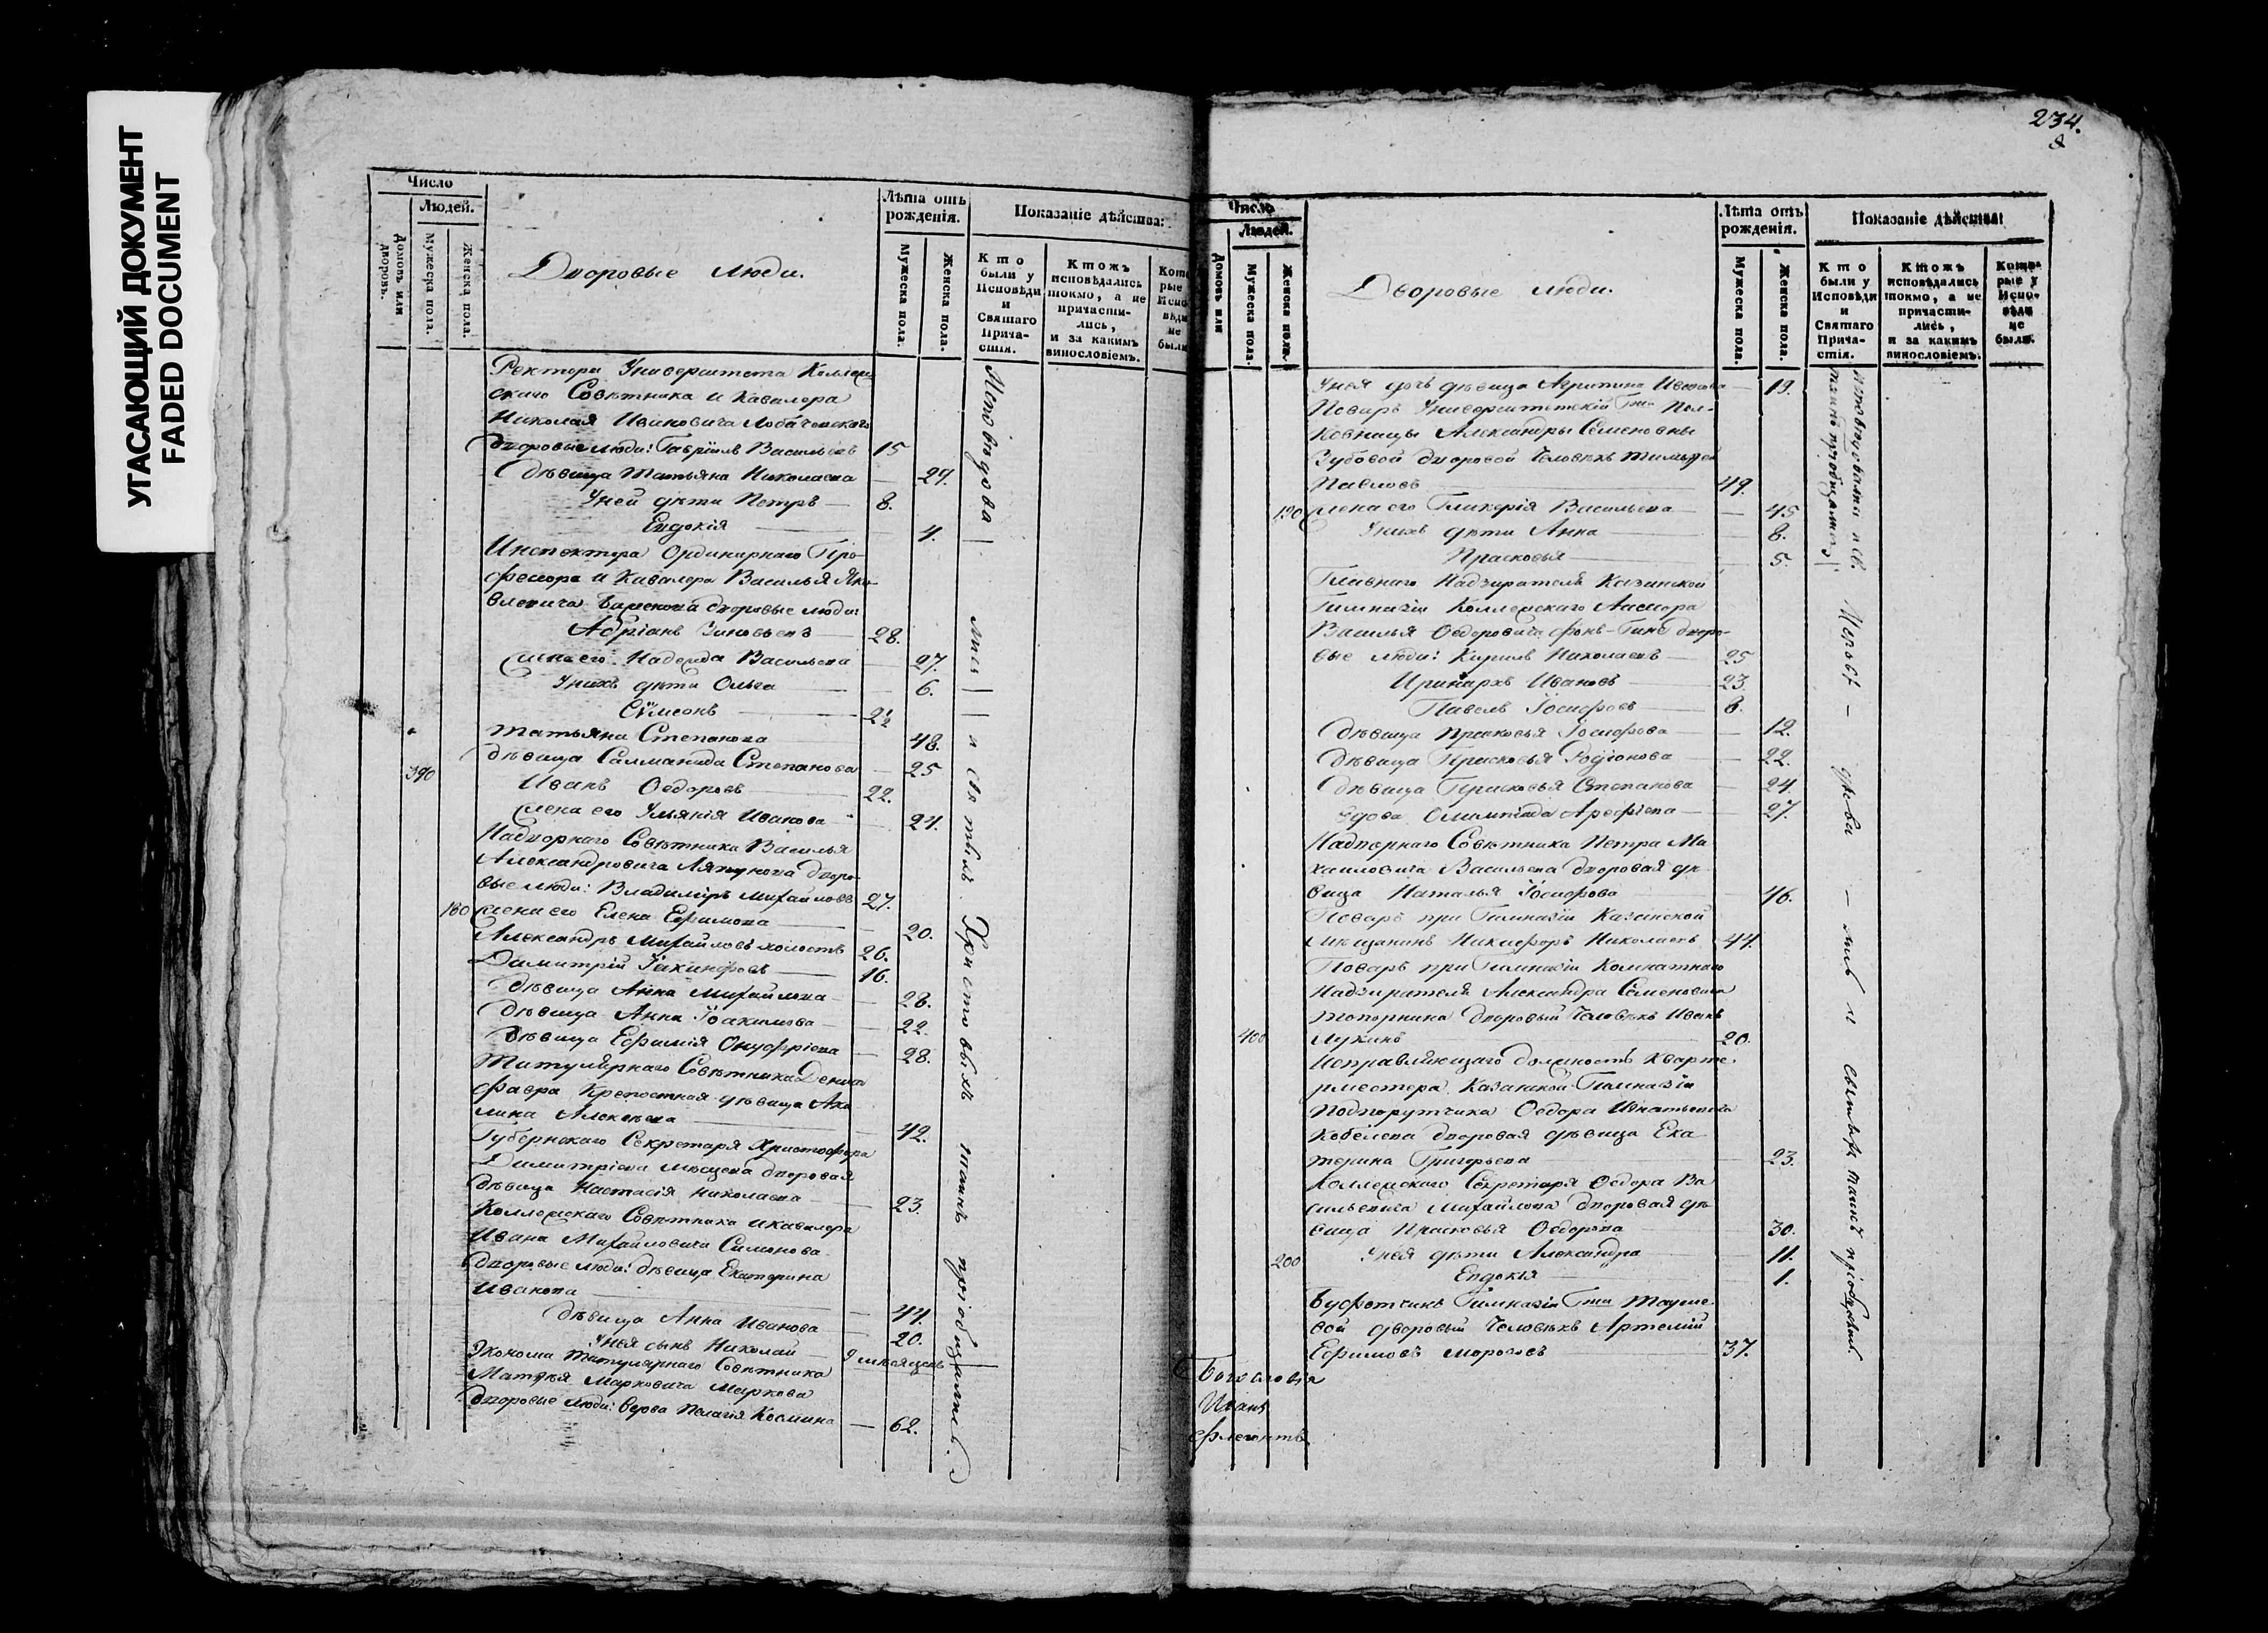 УГАСАЮЩИЙ ДОКУМЕНТ
FADED DOCUMENT
Число
Людей.
Домовъ или дворовъ.
Мужеска пола.
Женска пола.
Дворовые люди.
Лѣта отъ рожденія.
Мужеска пола.
Женска пола.
Показаніе дѣйства:
Кто были у Исповѣди и Святаго Причастія.
Ктожъ исповѣдались токмо, а не причастились, и за какимъ винословіемъ.
Которые у Исповѣди не были
Ректора Университета Коллеж
скаго Совѣтника и Кавалера
Николая Ивановича Лобачевскаго
дворовые люди: Гавріилъ Васильевъ 15
Дѣвица Татьяна Николаева — 27.
У ней дѣти Петръ — 8.
Евдокія 4.
Инспектора Ординарнаго Про-
фессора и Кавалера Василья Яко-
влевича дворовые люди:
Адріанъ Зиновьевъ 28.
жена его Надежда Васильева 27.
У нихъ дѣти Ольга 6.
Сѵмеонъ 2½
Татьяна Степанова 48.
дѣвица Саломанида Степанова 25
390 Иванъ Ѳедоровъ 22.
жена его Ульянія Иванова 24.
Надворнаго Совѣтника Василья
Александровича Ляпунова дворо-
вые люди: Владиміръ Михайловъ 27.
180 жена его Елена Ефимова 20.
Александръ Михайловъ холостъ 26.
Димитрій Іакинфовъ 16.
дѣвица Анна Михайлова 28.
дѣвица Анна Іоакимова 22.
дѣвица Ефимія Онуфріева 28.
Титулярнаго Совѣтника
Крепостная дѣвица Аку
лина Алексѣева 42.
Губернскаго Секретаря Христофора
Димитріева дворовая
дѣвица Настасія Николаева 23.
Коллежскаго Совѣтника и кавалера
Ивана Михайловича Симонова
дворовые люди: дѣвица Екатерина
Иванова 44.
дѣвица Анна Иванова 20.
У нея сынъ Николай 9 месяцевъ
Эконома Титулярнаго Совѣтника
Матвѣя Марковича Маркова
дворовые люди: вдова Пелагія Космина — 62.
Исповѣдова
лись
и святыхъ Христовыхъ таинъ пріобщались.
234.
8
Число
Людей.
Домовъ или
Мужеска пола.
Женска пола.
Дворовые люди.
Лѣта отъ рожденія.
Мужеска пола.
Женска пола.
Показаніе дѣйства:
Кто были у Исповѣди и Святаго Причастія.
Ктожъ исповѣдались токмо, а не причастились, и за какимъ винословіемъ.
Которые у Исповѣди не были.
У нея дочь дѣвица Агрипина Иванова 19.
Поваръ Университетскій Гжи Пол-
ковницы Александры Семеновны
Зубовой дворовой человѣкъ Тимофей
Павловъ 49.
190 жена его Гликерія Васильева 45
У нихъ дѣти Анна 8.
Прасковья 5.
Главнаго Надзирателя Казанской
Гимназіи Коллежскаго Ассесора
Василья Ѳедоровича фонъ-Гине дворо-
вые люди: Кирилъ Николаевъ 25
Иринархъ Ивановъ 23
Павелъ Іосифовъ 8.
дѣвица Прасковья Іосифова 12.
дѣвица Прасковья Родіонова 22.
дѣвица Прасковья Степанова 24.
вдова Олимпіада Арефьева 27.
Надворнаго Совѣтника Петра Ми
хаиловича Васильева дворовая дѣ
вица Наталья Іосифова 46.
Поваръ при Гимназіи Казанской
мѣщанинъ Никифоръ Николаевъ 44.
Поваръ при Гимназіи Комнатнаго
Надзирателя Александра Семеновича
Топорнина дворовый человѣкъ Иванъ
400 Лукинъ 20.
Исправляющаго должность кварте-
рмистера Казанской Гимназіи
Подпорутчика Ѳедора Игнатьевича
Кобелева дворовая дѣвица Ека
терина Григорьева 23.
Коллежскаго Секретаря Ѳедора Ва
сильевича Михайлова дворовая дѣ
вица Прасковья Ѳедорова 30.
200 У нея дѣти Александра 11.
Евдокія 1.
Буфетчикъ Гимназіи Гжи
вой дворовый человѣкъ Артемій
Ефимовъ Морозовъ 37.
исповѣдовались и св.
таинъ пріобщались
Исповѣ — дова — лись и святыхъ таинъ пріобщались.
Богословія
Иванъ